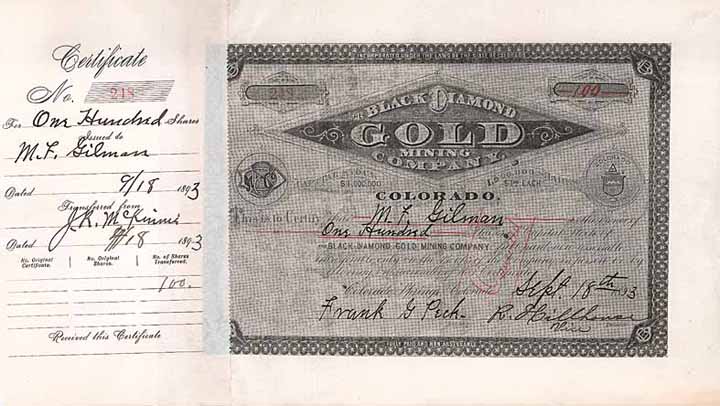 Certificate
No. 218
For One Hundred Shares
Issued to
M. F. Gilman
Dated 9/18 1893
Transferred from
J. R. McKinnie
Dated 9/18 1893
No. Original Certificate.
No. Original Shares.
No. of Shares Transferred.
100.
Received this Certificate
INCORPORATED UNDER THE LAWS OF
218
100
THE BLACK DIAMOND
GOLD
MINING
COMPANY.
CAPITAL STOCK
$1,000,000
$1.00 EACH
COLORADO.
This is to Certify that M. F. Gilman
One Hundred
BLACK DIAMOND GOLD MINING COMPANY
Colorado Springs, Colorado, Sept. 18th 93
Frank G Peck
R. Hillhouse
FULLY PAID AND NON ASSESSABLE